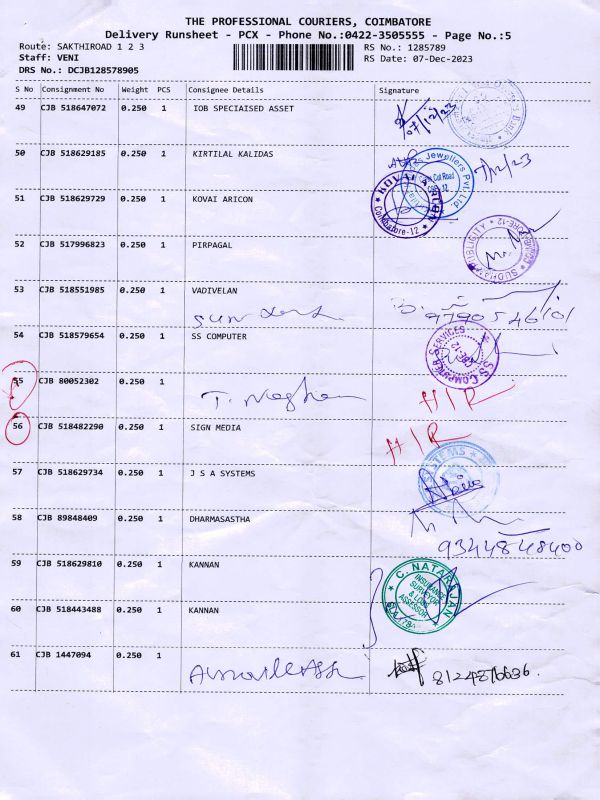 THE PROFESSIONAL COURIERS, COIMBATORE
Delivery Runsheet - PCX - Phone No.:0422-3505555 - Page No.:5
Route: SAKTHIROAD 1 2 3 RS No.: 1285789
Staff: VENI RS Date: 07-Dec-2023
DRS No.: DCJB128578905
S No Consignment No Weight PCS Consignee Details Signature
49 CJB 518647072 0.250 1 IOB SPECIAISED ASSET 07/12/23
50 CJB 518629185 0.250 1 KIRTILAL KALIDAS Jewellers Pvt. Ltd. 7/12/23
51 CJB 518629729 0.250 1 KOVAI ARICON Coimbatore-12
52 CJB 517996823 0.250 1 PIRPAGAL
53 CJB 518551985 0.250 1 VADIVELAN
9790546101
54 CJB 518579654 0.250 1 SS COMPUTER S.S. COMPUTER SERVICES
55 CJB 80052302 0.250 1 H/R
56 CJB 518482290 0.250 1 SIGN MEDIA H/R
57 CJB 518629734 0.250 1 J S A SYSTEMS
58 CJB 89848409 0.250 1 DHARMASASTHA
9344848400
59 CJB 518629810 0.250 1 KANNAN C. NATARAJAN
INSURANCE
SURVEYOR
& LOSS
ASSESSOR
60 CJB 518443488 0.250 1 KANNAN
61 CJB 1447094 0.250 1 8124876636.